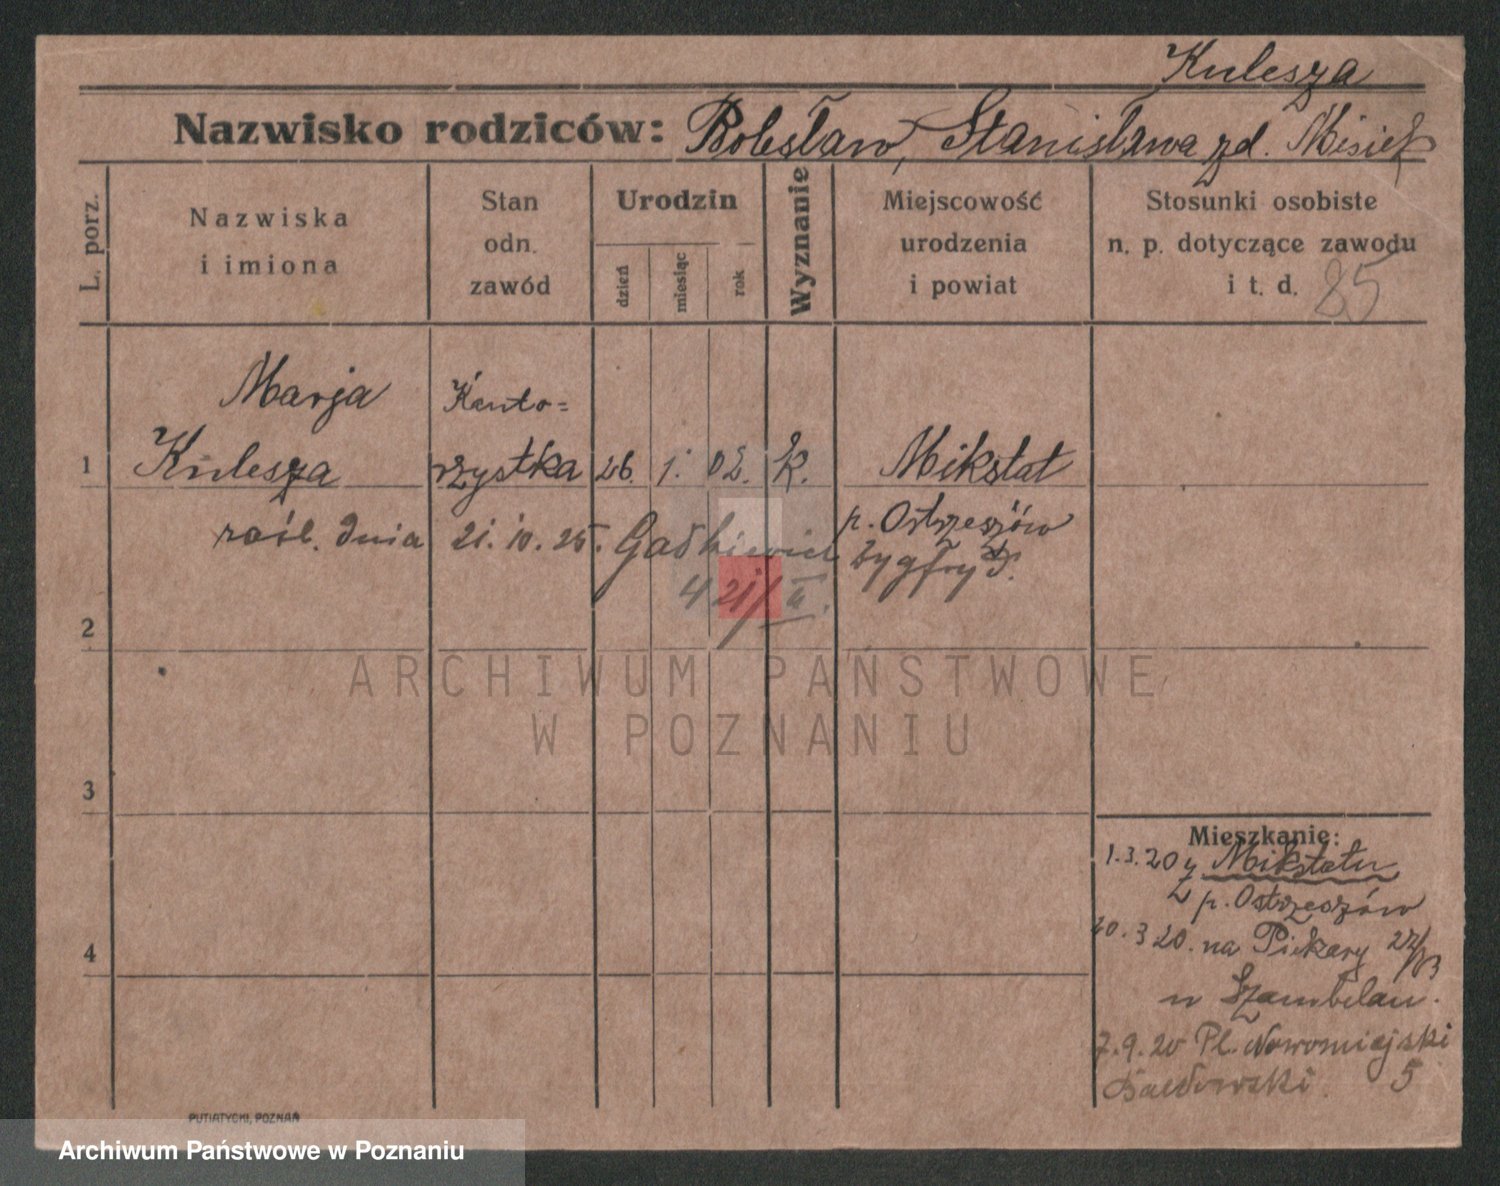 Kulesza
Nazwisko rodziców: Bolesław, Stanisława zd. Misiek
L. porz.
Nazwiska i imiona
Stan odn. zawód
Urodzin
dzień
miesiąc
rok
Wyznanie
Miejscowość urodzenia i powiat
Stosunki osobiste n. p. dotyczące zawodu i t. d. 85
Marja Kanto=
1 Kulesza rzystka 26. 1. 02. k. Mikstat
p. Ostrzeszów
zaśl. dnia 21. 10. 25. Zygfryd.
21/II.
2
ARCHIWUM PAŃSTWOWE
W POZNANIU
3
4
Mieszkanie:
1.3.20 z Mikstatu
p. Ostrzeszów
20.3.20. na Piekary
u Szambelan.
7.9.20 Pl. Nowomiejski
5
PUTIATYCKI, POZNAŃ
Archiwum Państwowe w Poznaniu